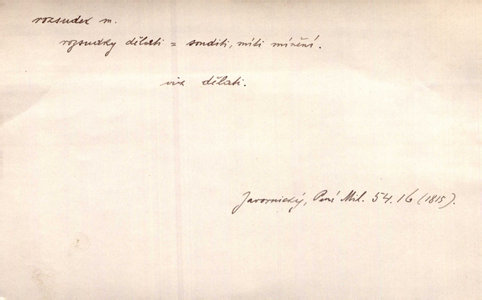 rozsudek m.
rozsudky dělati = souditi, míti mínění.
viz dělati.
Javornický, Písně Mil. 54.16 (1815).